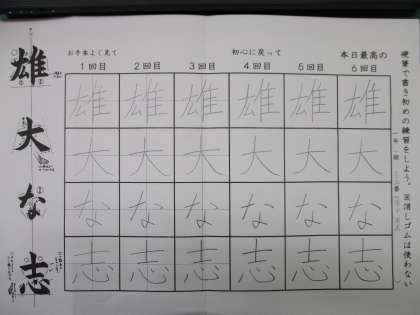 硬筆で書き初めの練習をしよう。※消しゴムは使わない
お手本よく見て 初心に戻って 本日最高の
1回目 2回目 3回目 4回目 5回目 6回目
雄 雄 雄 雄 雄 雄 雄
大 大 大 大 大 大 大
な な な な な な な
志 志 志 志 志 志 志